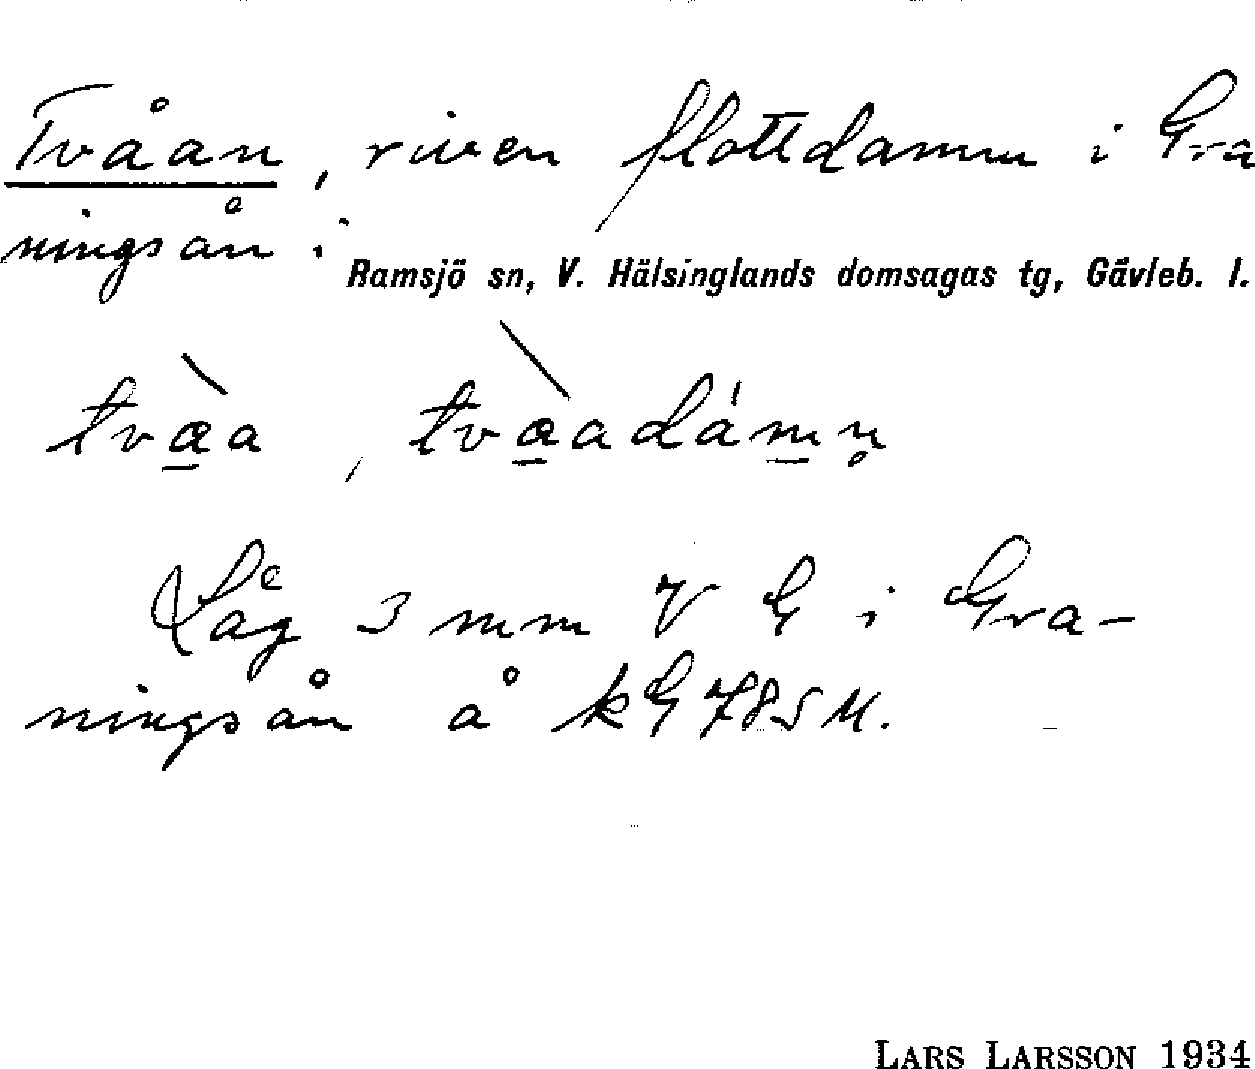 Tvåan, riven flottdamm i Gra
ningsån i
Ramsjö sn, V. Hälsinglands domsagas tg, Gävleb. l.
tvæ̠̀a, tvæ̠̀adám̠n̥
Låg 3 mm V G i Gra-
ningsån å kG 785 M.
LARS LARSSON 1934